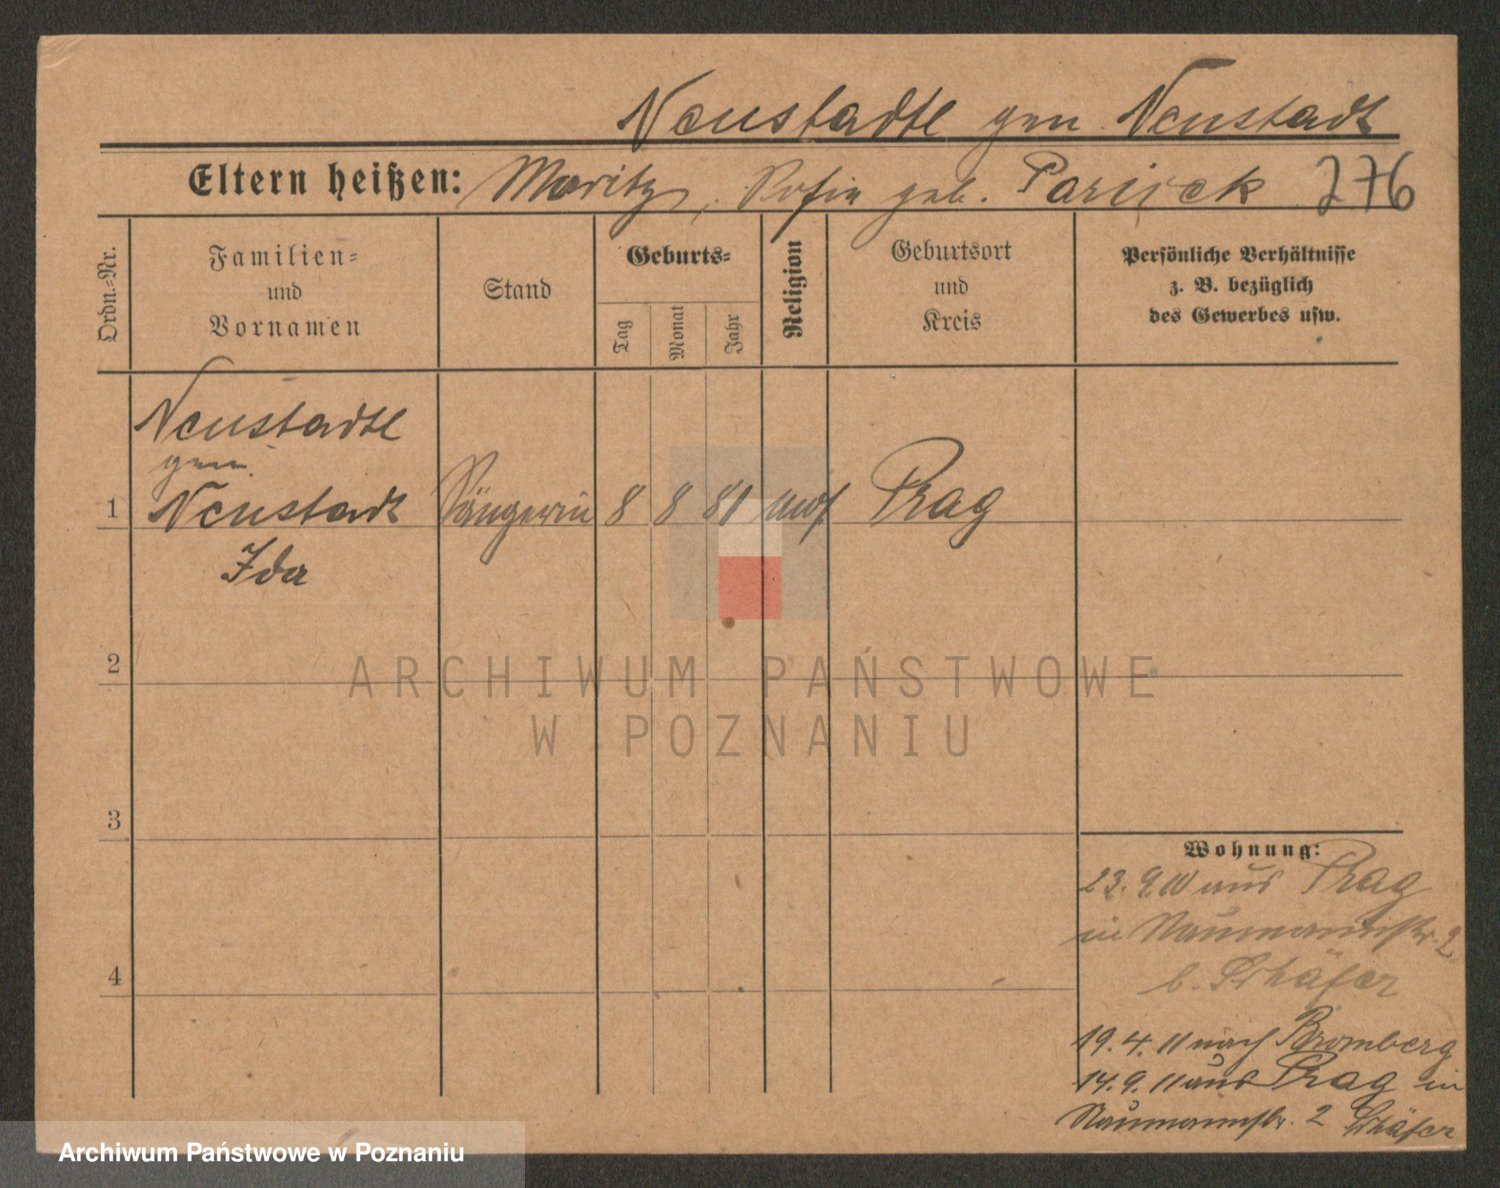 Neustadtl gen. Neustadt
Eltern heißen: Moritz, Sofie geb. 276
Ordn.-Nr.
Familien-
und
Vornamen
Stand
Geburts-
Tag
Monat
Jahr
Religion
Geburtsort
und
Kreis
Persönliche Verhältnisse
z. B. bezüglich
des Gewerbes usw.
Neustadtl
gen.
1 Neustadt Sängerin 8 8 81 mos Prag
Ida
2
3
4
Wohnung:
23. 9. 10 aus Prag
in Naumannstr. 2
b. Schäfer
19. 4. 11 nach Bromberg
14. 9. 11 aus Prag in
Naumannstr. 2 Schäfer
ARCHIWUM PAŃSTWOWE
W POZNANIU
Archiwum Państwowe w Poznaniu